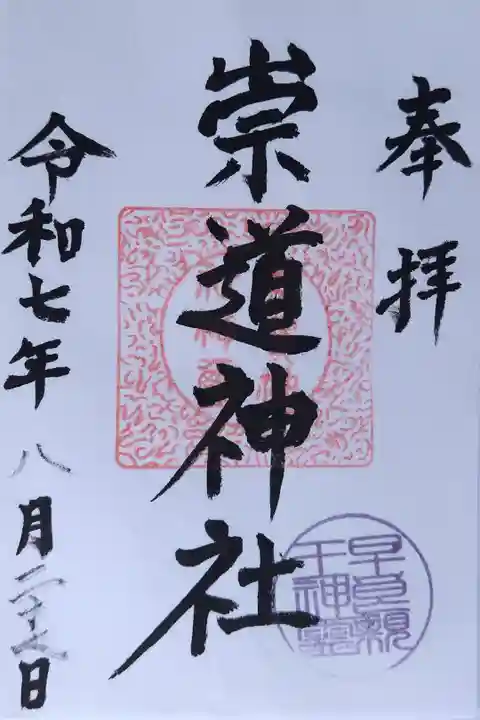 奉拝
崇道神社
早良親
王神霊
令和七年八月二十七日